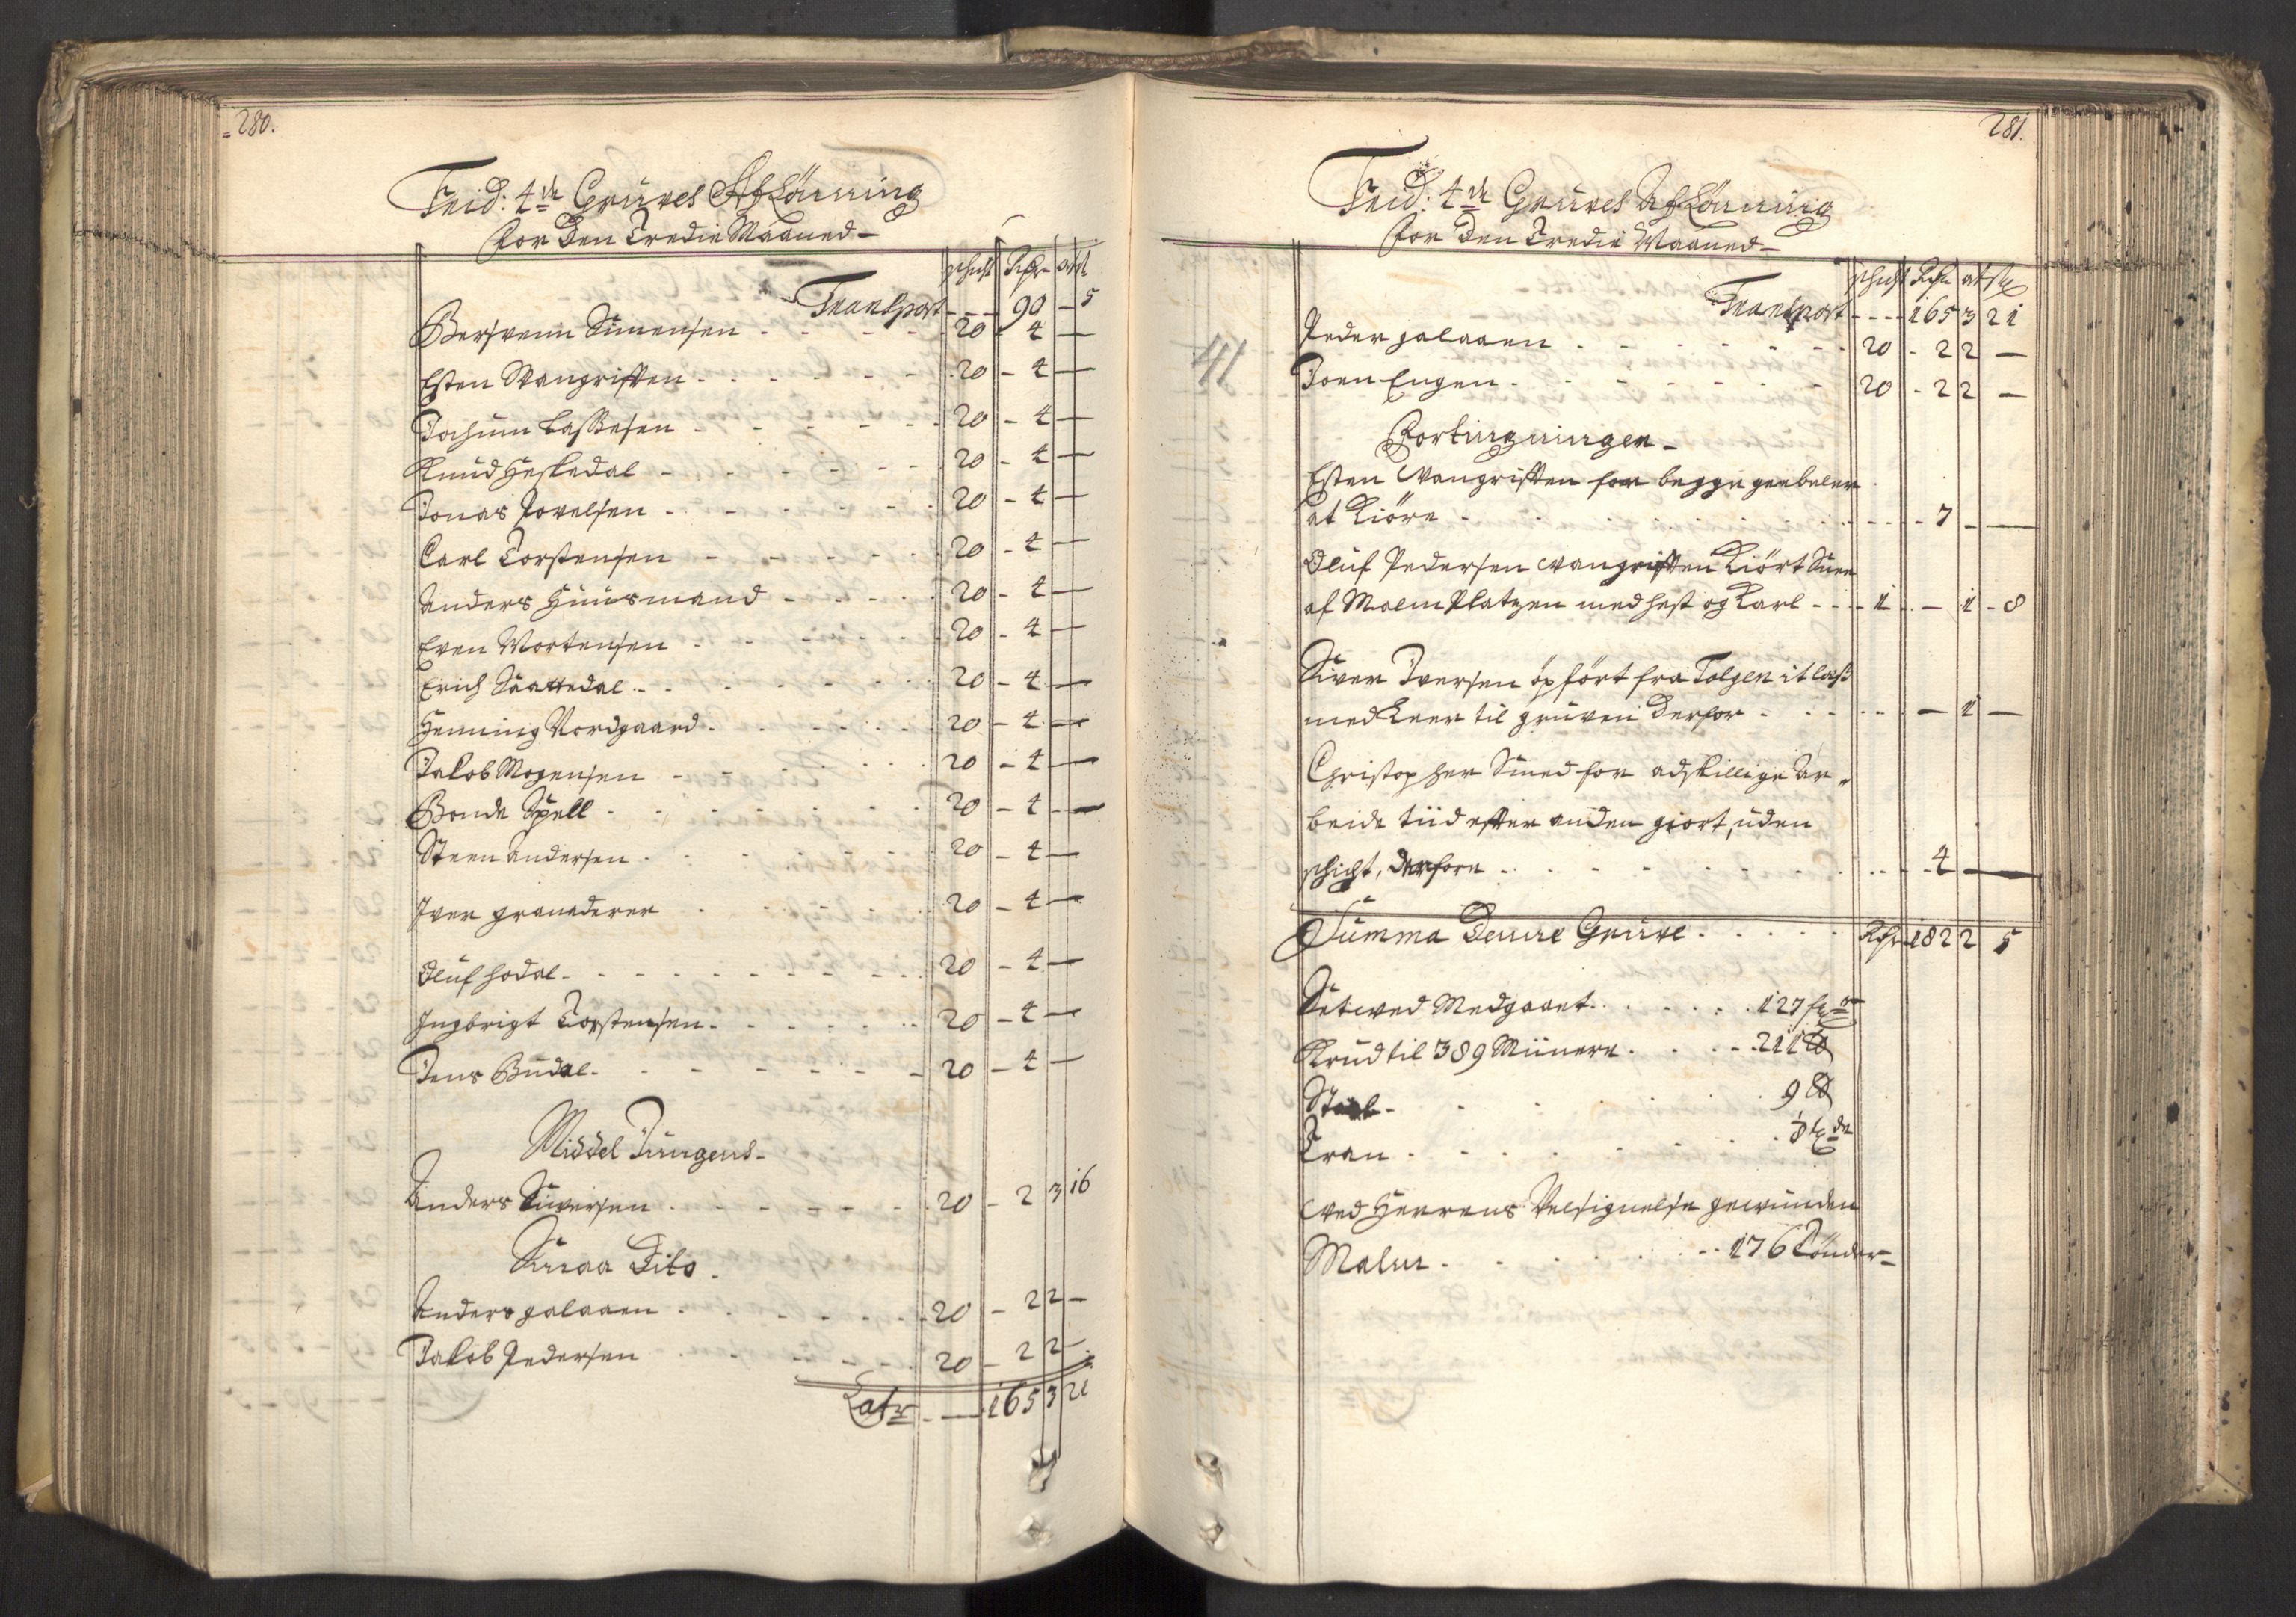 280.
Frid: 4de Gruves Aflönning
for Den Tredie Maaned
schicht Rdr ort
Transport - - - 90 - 5
Bersvenn Simensen 20 - 4 -
Esten Wangrøften 20 - 4 -
Jochum Lassesen 20 - 4 -
Knud Heskedal 20 - 4 -
Jonas Povelsen 20 - 4 -
Carl Torstensen 20 - 4 -
Anders Huusmand 20 - 4 -
Even Mortensen 20 - 4 -
Erich Saattedal 20 - 4 -
Henning Nordgaard 20 - 4 -
Jakob Mogensen 20 - 4 -
Bonde Spell 20 - 4 -
Steen Andersen 20 - 4 -
Iver granaderer 20 - 4 -
Oluf Hodal 20 - 4 -
Ingbrigt Torstensen 20 - 4 -
Jens Budal 20 - 4 -
Middel Jungens
Anders Siversen 20 - 2 3 16
Smaa Dito
Anders galaaen 20 - 2 2 -
Jakob Pedersen 20 - 2 2 -
Latr - 165 3 21
281.
Frid: 4de Gruves Aflönning
for Den Tredie Maaned
schicht Rdr ort sk
Transport - - - 165 3 21
Peder galaaen 20 - 2 2 -
41
Joen Engen 20 - 2 2 -
Fortingningen
Esten Wangrøften for begge geebeler
at Kiöre 7 - -
Oluf Pedersen Wangrøften Kiört Snee
af Malm Platzen med hest og Karl 1 - 1 - 8
Siver Iversen op fört fra Tolgen it lass
med Leer til gruven derfor - 1 -
Christopher Smed for adskillige Ar-
beide tiid efter anden giort, uden
schicht, derfore 4 - -
Summa Denne Gruve Rdr 182 2 5
Setwed Medgaaet 127 fn
Krud til 389 Miinere 211 ℔
Staal 9 ℔
Tran
Wed Herrens Velsignelse gewunden
Malm 176 Tönder